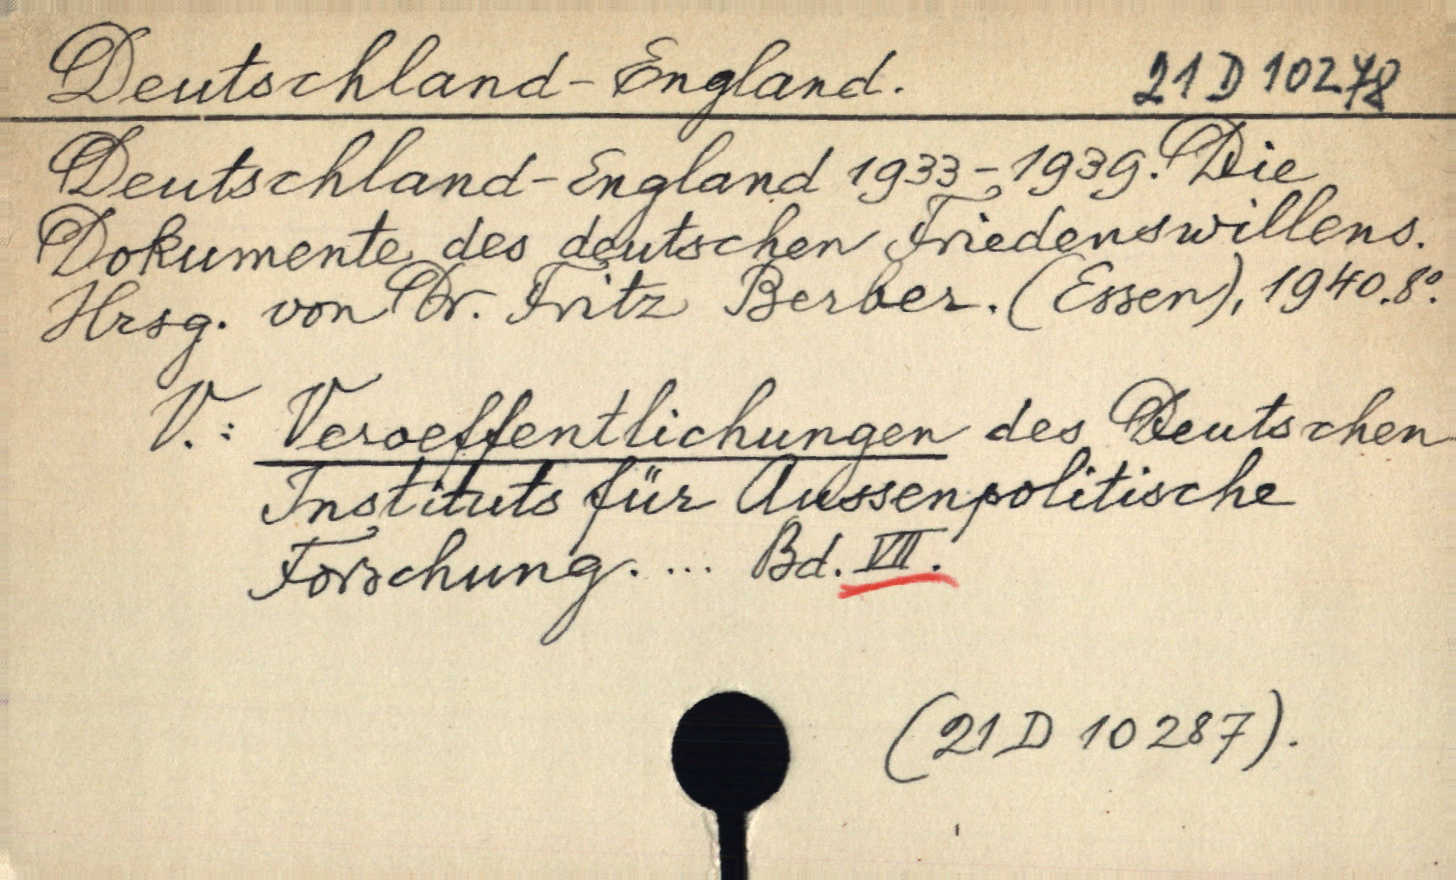 Deutschland-England. 21 D 10278
Deutschland-England 1933-1939. Die
Dokumente des deutschen Friedenswillens.
Hrsg. von Dr. Fritz Berber. (Essen), 1940. 8°.
V.: Veroeffentlichungen des Deutschen
Instituts für Aussenpolitische
Forschung. ... Bd. VII.
(21 D 10287).